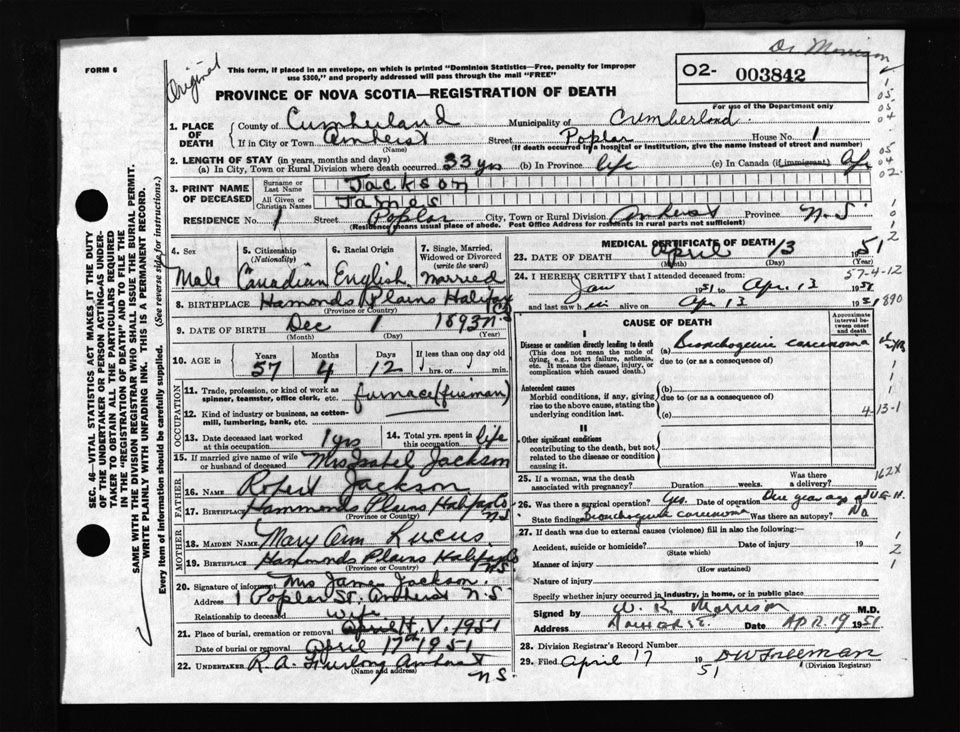 Dr Morrison
FORM 6
Original
This form, if placed in an envelope, on which is printed "Dominion Statistics—Free, penalty for improper
use $300," and properly addressed will pass through the mail "FREE"
02- 003842
For use of the Department only
PROVINCE OF NOVA SCOTIA—REGISTRATION OF DEATH
1. PLACE OF DEATH
County of Cumberland Municipality of Cumberland
If in City or Town Amherst Street Poplar House No. 1
(Name) (If death occurred in a hospital or institution, give the name instead of street and number)
2. LENGTH OF STAY (in years, months and days)
(a) In City, Town or Rural Division where death occurred 33 yrs (b) In Province life (c) In Canada (if immigrant) life
3. PRINT NAME OF DECEASED
Surname or Last Name Jackson
All Given or Christian Names James
RESIDENCE No. 1 Street Poplar City, Town or Rural Division Amherst Province N.S.
(Residence means usual place of abode. Post Office Address for residents in rural parts not sufficient)
4. Sex Male
5. Citizenship (Nationality) Canadian
6. Racial Origin English
7. Single, Married, Widowed or Divorced (write the word) Married
8. BIRTHPLACE Hamonds Plains Halifax Co N.S.
(Province or Country)
9. DATE OF BIRTH Dec 1 1893
(Month) (Day) (Year)
10. AGE in Years 57 Months 4 Days 12 If less than one day old hrs. or min.
OCCUPATION
11. Trade, profession, or kind of work as spinner, teamster, office clerk, etc. furnace (fireman)
12. Kind of industry or business, as cotton-mill, lumbering, bank, etc.
13. Date deceased last worked at this occupation 1 yrs 14. Total yrs. spent in this occupation life
15. If married give name of wife or husband of deceased Mrs Isabel Jackson
FATHER
16. NAME Robert Jackson
17. BIRTHPLACE Hammonds Plains Halifax Co. N.S.
(Province or Country)
MOTHER
18. MAIDEN NAME Mary Ann Lucus
19. BIRTHPLACE Hammonds Plains Halifax Co N.S.
(Province or Country)
20. Signature of informant Mrs James Jackson
Address 1 Poplar St. Amherst N.S.
Relationship to deceased wife
21. Place of burial, cremation or removal
Date of burial or removal April 17th 1951
22. UNDERTAKER R. A. Furlong Amherst N.S.
(Name and address)
MEDICAL CERTIFICATE OF DEATH
23. DATE OF DEATH April 13 1951
(Month) (Day) (Year)
57-4-12
24. I HEREBY CERTIFY that I attended deceased from:
Jan 1951 to Apr. 13 1951
and last saw him alive on Apr 13 1951
890
CAUSE OF DEATH
Approximate interval between onset and death
I
Disease or condition directly leading to death
(This does not mean the mode of dying, e.g., heart failure, asthenia, etc. It means the disease, injury, or complication which caused death.)
(a) Bronchogenic carcinoma
due to (or as a consequence of)
Antecedent causes
Morbid conditions, if any, giving rise to the above cause, stating the underlying condition last.
(b)
due to (or as a consequence of)
(c)
4-13-1
II
Other significant conditions
contributing to the death, but not related to the disease or condition causing it.
25. If a woman, was the death associated with pregnancy? Duration weeks. Was there a delivery?
162X
26. Was there a surgical operation? Yes. Date of operation One year ago
State findings Bronchogenic carcinoma Was there an autopsy? No
27. If death was due to external causes (violence) fill in also the following:—
Accident, suicide or homicide? Date of injury 19
(State which)
Manner of injury
(How sustained)
Nature of injury
Specify whether injury occurred in industry, in home, or in public place
Signed by W. R. Morrison M.D.
Address Amherst Date Apr. 19 1951
28. Division Registrar's Record Number
29. Filed April 17 1951 D W Freeman
(Division Registrar)
SEC. 46—VITAL STATISTICS ACT MAKES IT THE DUTY
OF THE UNDERTAKER OR PERSON ACTING AS UNDER-
TAKER TO OBTAIN ALL THE PARTICULARS REQUIRED
IN THE "REGISTRATION OF DEATH" AND TO FILE THE
SAME WITH THE DIVISION REGISTRAR WHO SHALL ISSUE THE BURIAL PERMIT.
WRITE PLAINLY WITH UNFADING INK. THIS IS A PERMANENT RECORD.
Every item of Information should be carefully supplied. (See reverse side for instructions.)